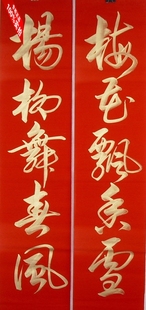 梅花飄香雪
楊柳舞春風